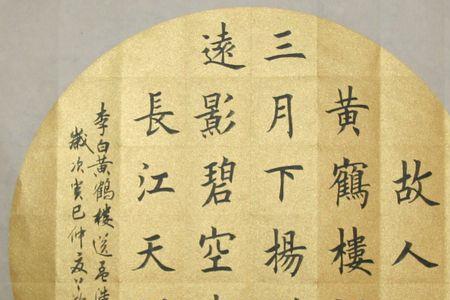 故人
黄鶴樓
三月下揚
遠影碧空
長江天
李白黄鶴樓送孟浩
歲次癸巳仲夏